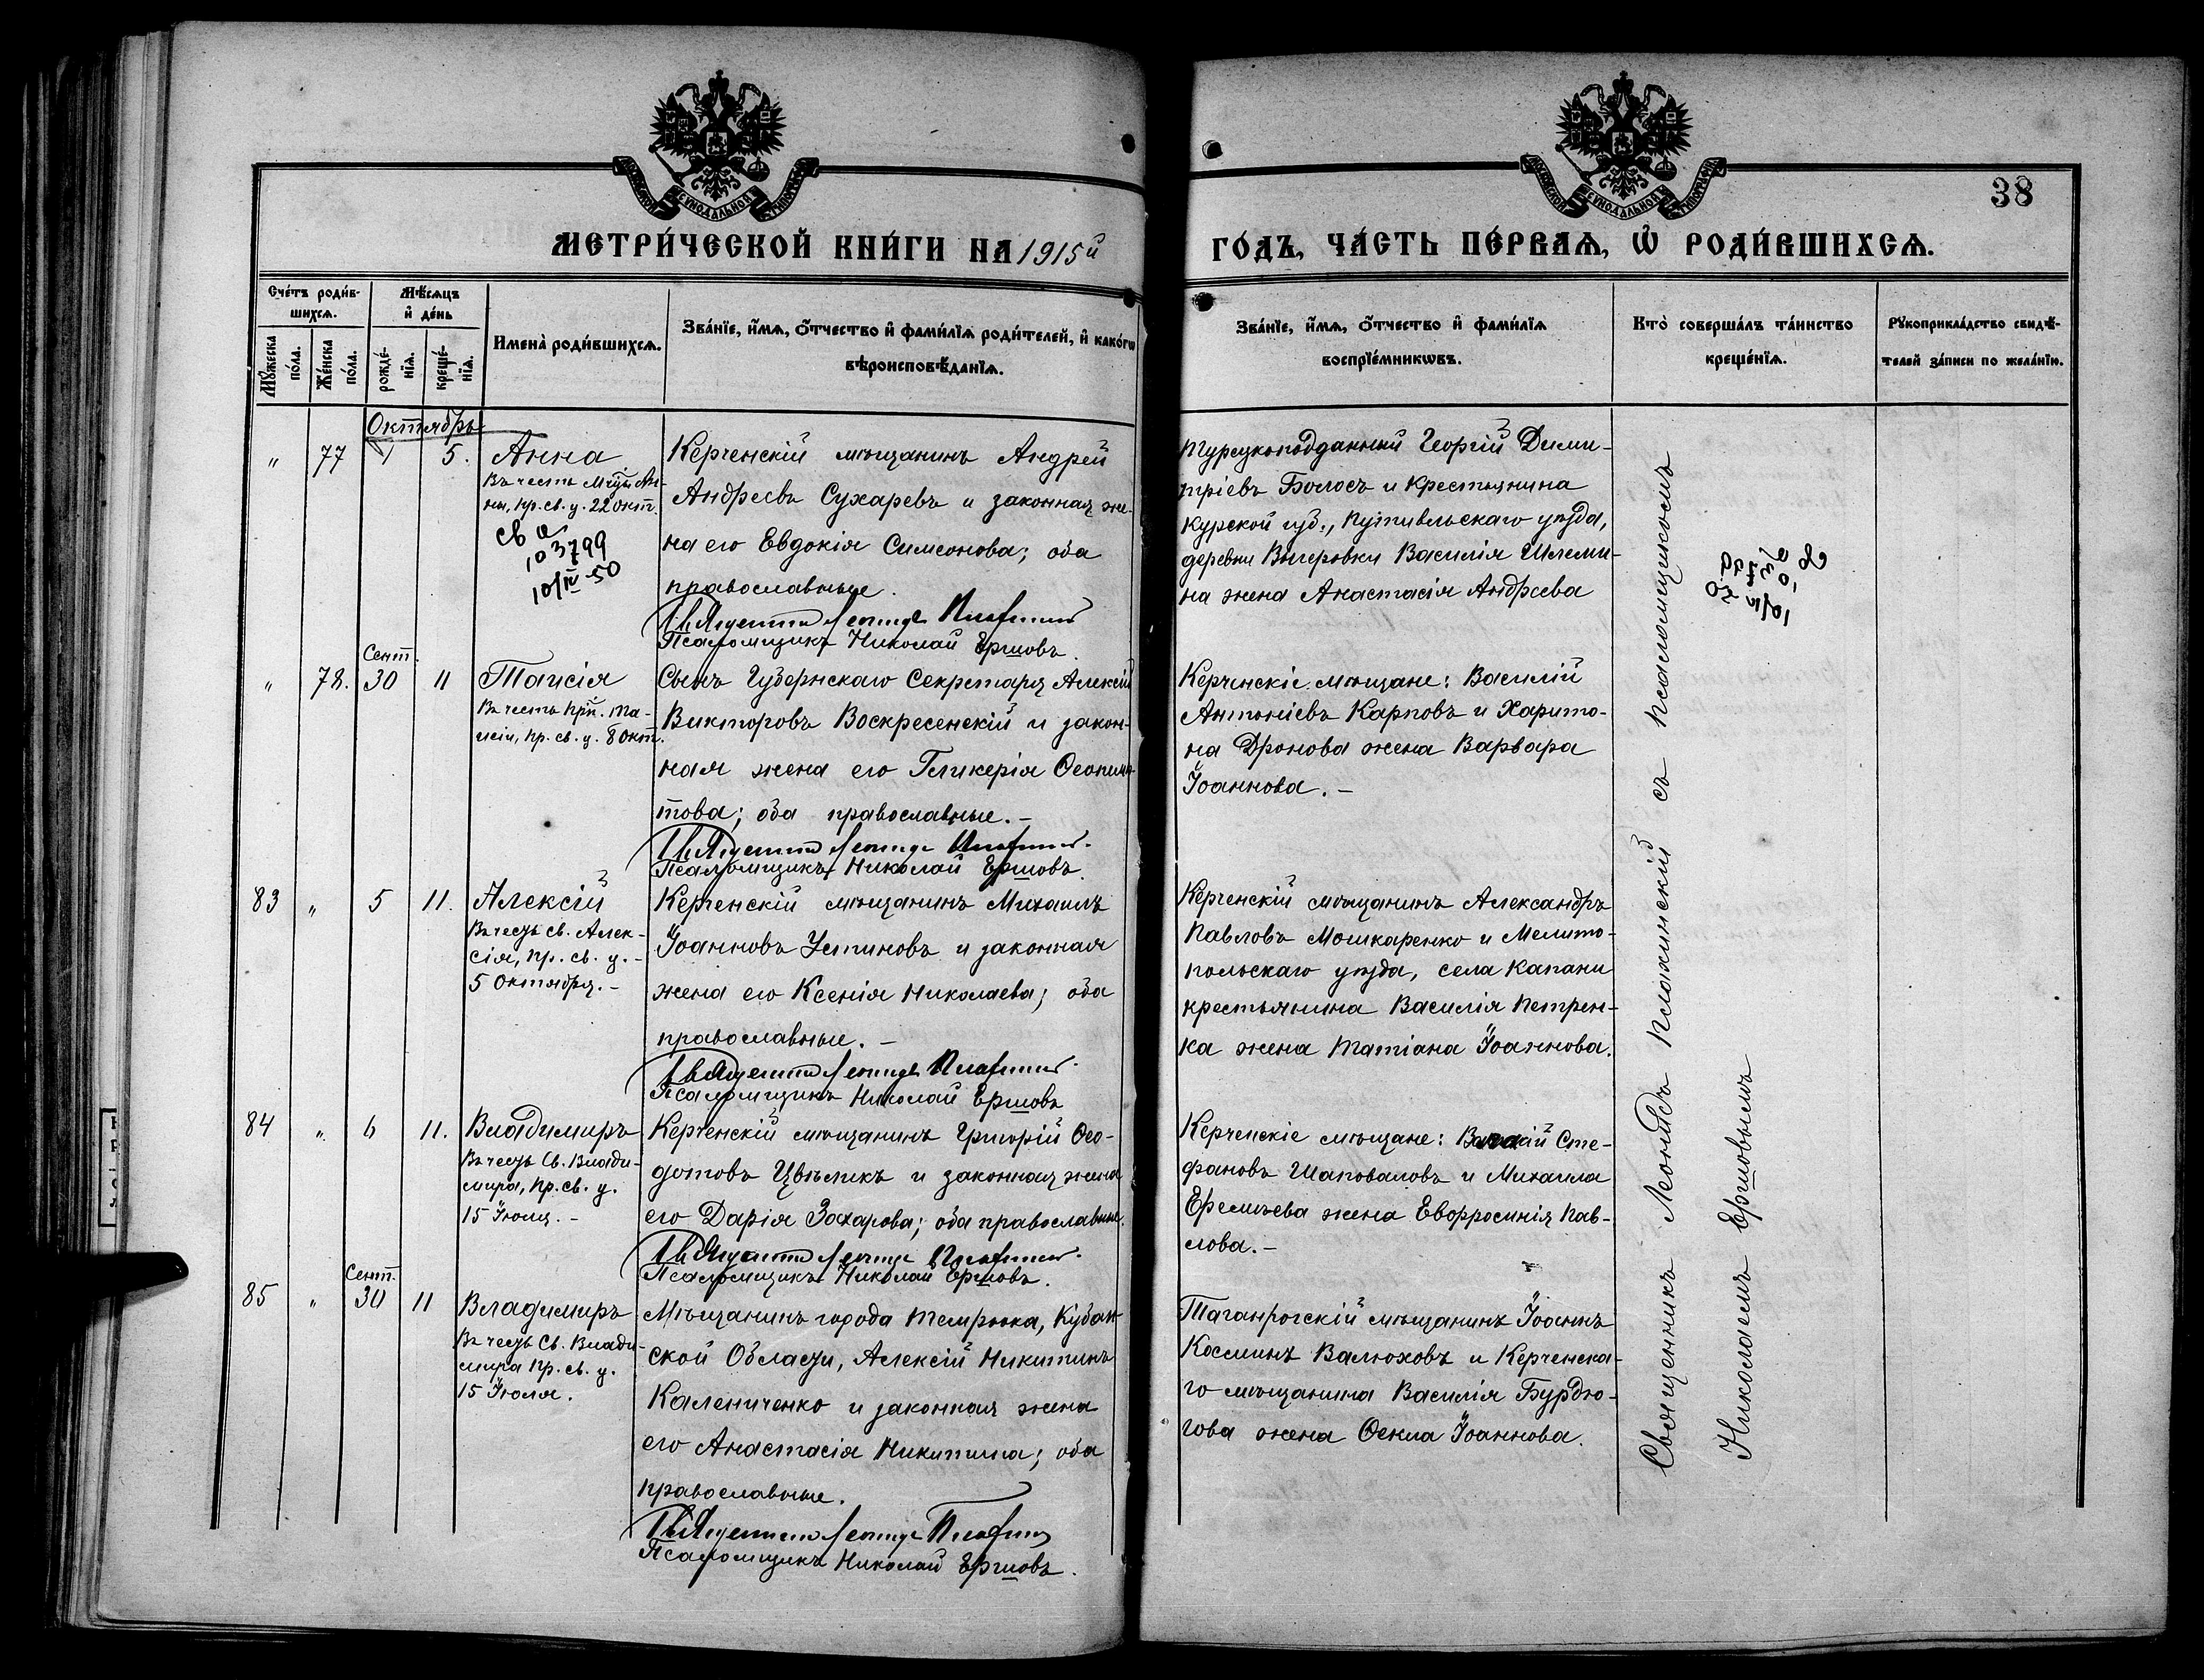 МОСКОВСКОЙ СѴНОДАЛЬНОЙ ТИПОГРАФІИ
МОСКОВСКОЙ СѴНОДАЛЬНОЙ ТИПОГРАФІИ
38
МЕТРИ́ЧЕСКОЙ КНИ́ГИ НА 1915й
ГО́ДЪ, ЧА́СТЬ ПЕ́РВАѦ, Ѡ҆ РОДИ́ВШИХСѦ.
Сче́тъ роди́в-
шихсѧ.
Мѣ́сѧцъ
и҆ де́нь
Мꙋ́жеска
по́ла.
Же́нска
по́ла.
рожде́-
нїѧ.
креще́-
нїѧ.
Имена̀ роди́вшихсѧ.
Зва́нїе, и҆́мѧ, ѻ҆́тчество и҆ фами́лїѧ роди́телей, и҆ како́гѡ
вѣроисповѣ́данїѧ.
Зва́нїе, и҆́мѧ, ѻ҆́тчество и҆ фами́лїѧ
воспрїе́мникѡвъ.
Кто̀ соверша́лъ та́инство
креще́нїѧ.
Рꙋкоприкла́дство свидѣ́-
телей за́писи по жела́нїю.
Октябрь
" 77 1 5. Анна
Въ честь Мчцы Ан-
ны, пр. св. ц. 22 окт.
св о
103799
10/IV-50
Керченскій мѣщанинъ Андрей
Андреевъ Сухаревъ и законная же-
на его Евдокія Симеонова; оба
православные.
Псаломщикъ Николай Ершовъ.
Турецкоподданный Георгій Дими-
тріевъ Болосъ и крестьянина
Курской губ., Путивльскаго уѣзда,
деревни Василія Шлеми-
на жена Анастасія Андреева
Сент.
" 78. 30 11 Таисія
Въ честь прп. Та-
исіи, пр. св. ц. 8 окт.
Сынъ Губернскаго Секретаря Алексій
Викторовъ Воскресенскій и закон-
ная жена его Гликерія Ѳеопемп-
това; оба православные. –
Псаломщикъ Николай Ершовъ.
Керченскіе мѣщане: Василій
Антоніевъ Карповъ и Харито-
на Дронова жена Варвара
Іоаннова. –
83 " 5 11. Алексій
Въ честь св. Алек-
сія, пр. св. ц. –
5 Октября. –
Керченскій мѣщанинъ Михаилъ
Іоанновъ Устиновъ и законная
жена его Ксенія Николаева; оба
православные. –
Псаломщикъ Николай Ершовъ
Керченскій мѣщанинъ Александръ
Павловъ Мошкаренко и Мелито-
польскаго уѣзда, села Капани
крестьянина Василія Петрен-
ка жена Татіана Іоаннова.
84 " 6 11. Владимиръ
Въ честь Св. Влади-
мира, пр. св. ц.
15 Іюля. –
Керченскій мѣщанинъ Григорій Ѳео-
дотовъ Цвѣликъ и законная жена
его Дарія Захарова; оба православные.
Псаломщикъ Николай Ершовъ.
Керченскіе мѣщане: Сте-
фановъ Шаповаловъ и Михаила
Еремѣева жена Евфросинія Пав-
лова. –
Сент.
85 " 30 11 Владимиръ
Въ честь Св. Влади-
мира пр. св. ц.
15 Іюля.
Мѣщанинъ города Темрюка, Кубан-
ской Области, Алексій Никитинъ
Калениченко и законная жена
его Анастасія Никитина; оба
православные.
Псаломщикъ Николай Ершовъ.
Таганрогскій мѣщанинъ Іоаннъ
Косминъ Валюховъ и Керченска-
го мѣщанина Василія Бурдю-
гова жена Ѳекла Іоаннова.
Священникъ Леонидъ Плохинскій съ псаломщикомъ
Николаемъ Ершовымъ